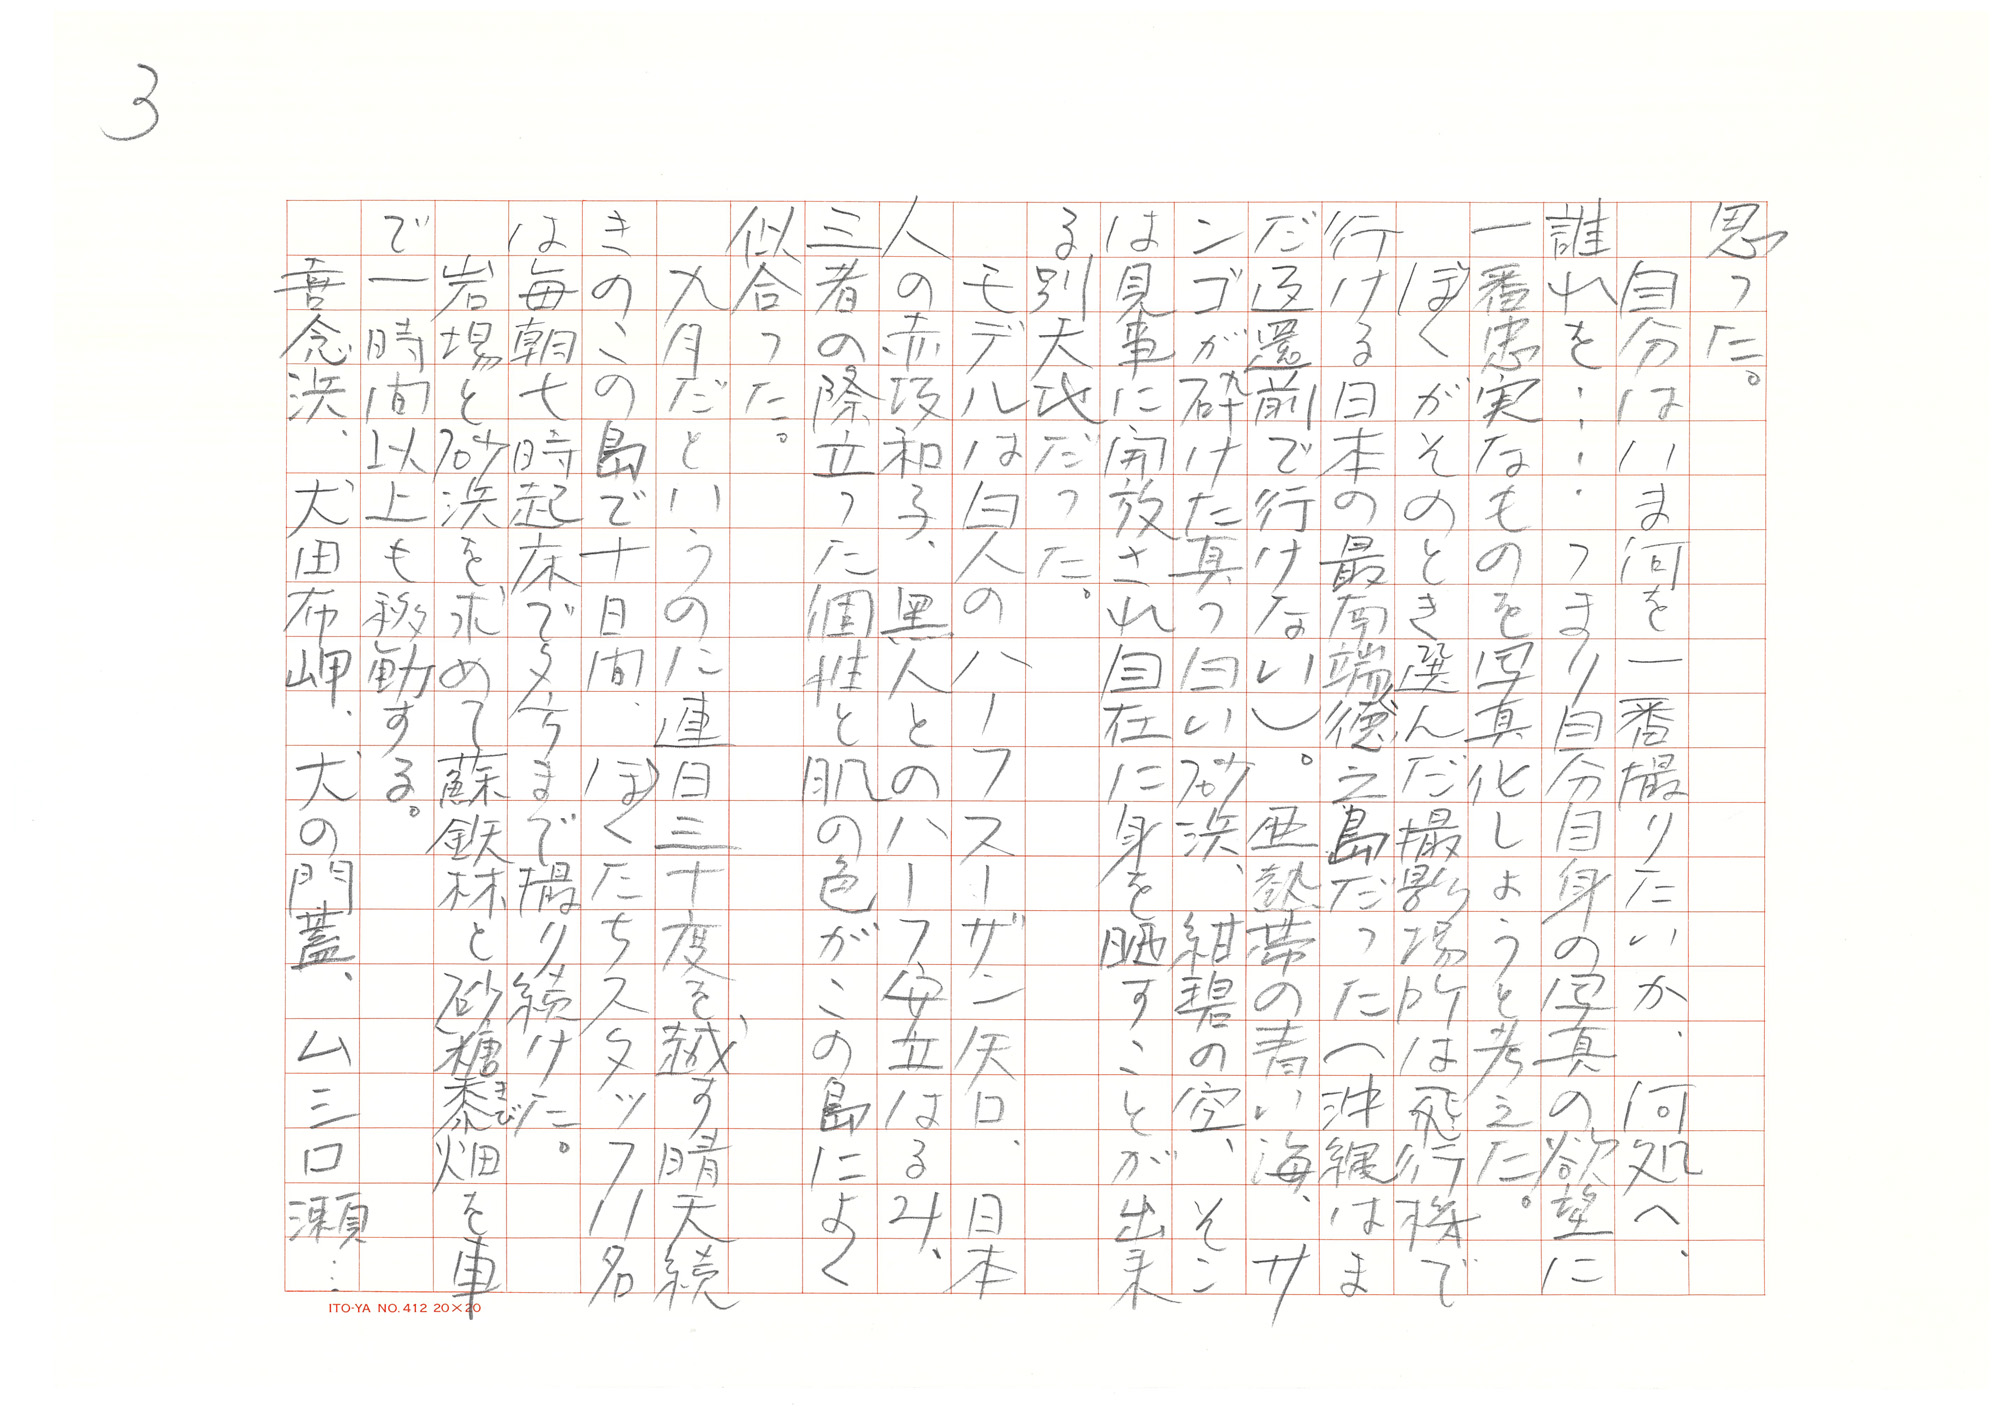 3
思った。
自分はいま何を一番撮りたいか、何処へ、
誰れを……つまり自分自身の写真の欲望に
一番忠実なものを写真化しようと考えた。
ぼくがそのとき選んだ撮影場所は飛行機で
行ける日本の最南端徳之島だった（沖縄はま
だ返還前で行けない）。亜熱帯の青い海、サ
ンゴが砕けた真っ白い砂浜、紺碧の空、そこ
は見事に開放され自在に身を晒すことが出来
る別天地だった。
モデルは白人のハーフスーザン矢口、日本
人の赤坂和子、黒人とのハーフ安立はる21、
三者の際立った個性と肌の色がこの島によく
似合った。
九月だというのに連日三十度を越す晴天続
きのこの島で十日間、ぼくたちスタッフ11名
は毎朝七時起床で夕方まで撮り続けた。
岩場と砂浜を求めて蘇鉄林と砂糖黍畑を車
きび
で一時間以上も移動する。
喜念浜、犬田布岬、犬の門蓋、ム三口瀬…
ITO-YA NO.412 20×20